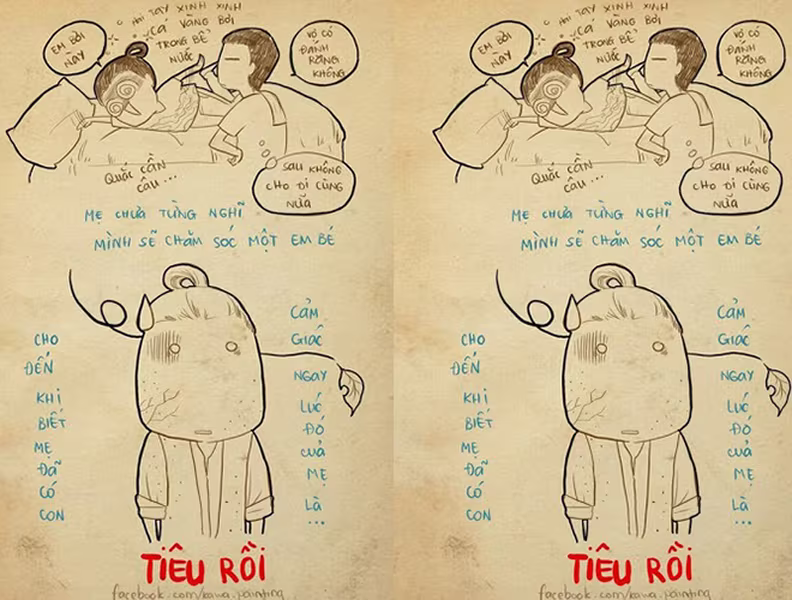 EM BƠI
NÀY
HAI TAY XINH XINH
CÁ VÀNG BƠI
TRONG BỂ
NƯỚC
VỢ CÓ
ĐÁNH
RĂNG
KHÔNG
QUẮC CẦN
CÂU ...
SAU KHÔNG
CHO ĐI CÙNG
NỮA
MẸ CHƯA TỪNG NGHĨ
MÌNH SẼ CHĂM SÓC MỘT EM BÉ
CHO
ĐẾN
KHI
BIẾT
MẸ
ĐÃ
CÓ
CON
CẢM
GIÁC
NGAY
LÚC
ĐÓ
CUẢ
MẸ
LÀ
...
TIÊU RỒI
facebook.com/kawa.painting
EM BƠI
NÀY
HAI TAY XINH XINH
CÁ VÀNG BƠI
TRONG BỂ
NƯỚC
VỢ CÓ
ĐÁNH
RĂNG
KHÔNG
QUẮC CẦN
CÂU ...
SAU KHÔNG
CHO ĐI CÙNG
NỮA
MẸ CHƯA TỪNG NGHĨ
MÌNH SẼ CHĂM SÓC MỘT EM BÉ
CHO
ĐẾN
KHI
BIẾT
MẸ
ĐÃ
CÓ
CON
CẢM
GIÁC
NGAY
LÚC
ĐÓ
CUẢ
MẸ
LÀ
...
TIÊU RỒI
facebook.com/kawa.painting